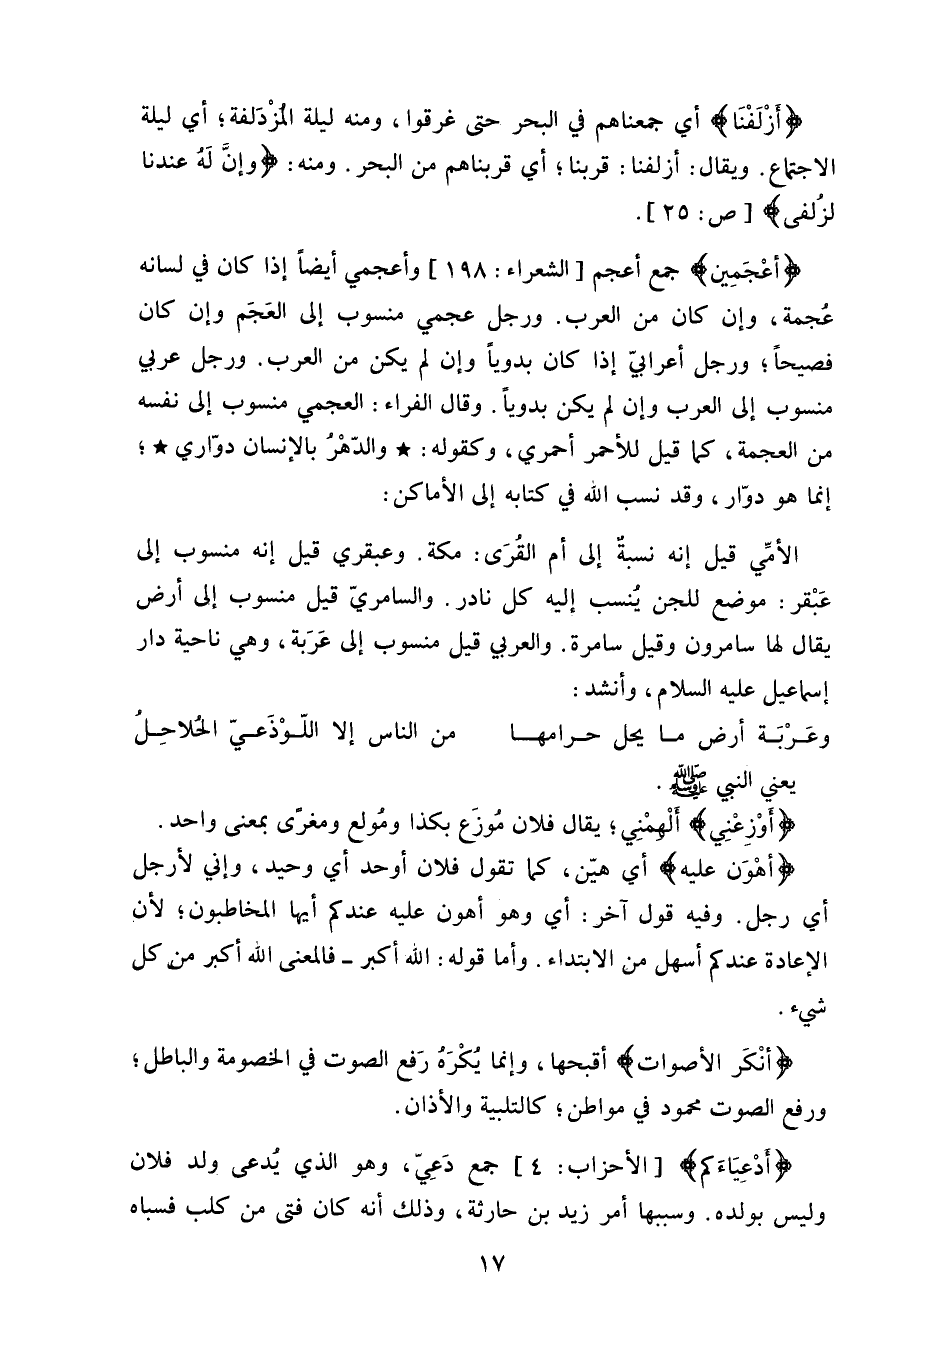 ﴿أَزْلَفْنَا﴾ أي جمعناهم في البحر حتى غرقوا، ومنه ليلة المُزْدَلفة؛ أي ليلة
الاجتماع. ويقال: أزلفنا: قربنا؛ أي قربناهم من البحر. ومنه: ﴿وإنَّ لَهُ عندنا
لزُلفى﴾ [ص: ٢٥].
﴿أعْجَمِين﴾ جمع أعجم [الشعراء: ١٩٨] وأعجمي أيضاً إذا كان في لسانه
عُجمة، وإن كان من العرب. ورجل عجمي منسوب إلى العَجَم وإن كان
فصيحاً؛ ورجل أعرابيّ إذا كان بدوياً وإن لم يكن من العرب. ورجل عربي
منسوب إلى العرب وإن لم يكن بدوياً. وقال الفراء: العجمي منسوب إلى نفسه
من العجمة، كما قيل للأحمر أحمري، وكقوله: ★ والدّهْرُ بالإنسان دوّاري ★؛
إنما هو دوّار، وقد نسب الله في كتابه إلى الأماكن:
الأمِّي قيل إنه نسبةٌ إلى أم القُرَى: مكة. وعبقري قيل إنه منسوب إلى
عَبْقر: موضع للجن يُنسب إليه كل نادر. والسامريّ قيل منسوب إلى أرض
يقال لها سامرون وقيل سامرة. والعربي قيل منسوب إلى عَرَبة، وهي ناحية دار
إسماعيل عليه السلام، وأنشد:
وعَرْبَة أرض ما يحل حرامها من الناس إلا اللّوْذَعيّ الحُلاحِلُ
يعني النبي ﷺ.
﴿أَوْزِعْنِي﴾ أَلْهِمْنِي؛ يقال فلان مُوزَع بكذا ومُولع ومغرًى بمعنى واحد.
﴿أهْوَن عليه﴾ أي هيّن، كما تقول فلان أوحد أي وحيد، وإني لأرجل
أي رجل. وفيه قول آخر: أي وهو أهون عليه عندكم أيها المخاطبون؛ لأن
الإعادة عندكم أسهل من الابتداء. وأما قوله: الله أكبر ــ فالمعنى الله أكبر من كل
شيء.
﴿أنْكَر الأصوات﴾ أقبحها، وإنما يُكْرَهُ رَفع الصوت في الخصومة والباطل؛
ورفع الصوت محمود في مواطن؛ كالتلبية والأذان.
﴿أَدْعِيَاءَكم﴾ [الأحزاب: ٤] جمع دَعِيّ، وهو الذي يُدعى ولد فلان
وليس بولده. وسببها أمر زيد بن حارثة، وذلك أنه كان فتى من كلب فسباه
١٧